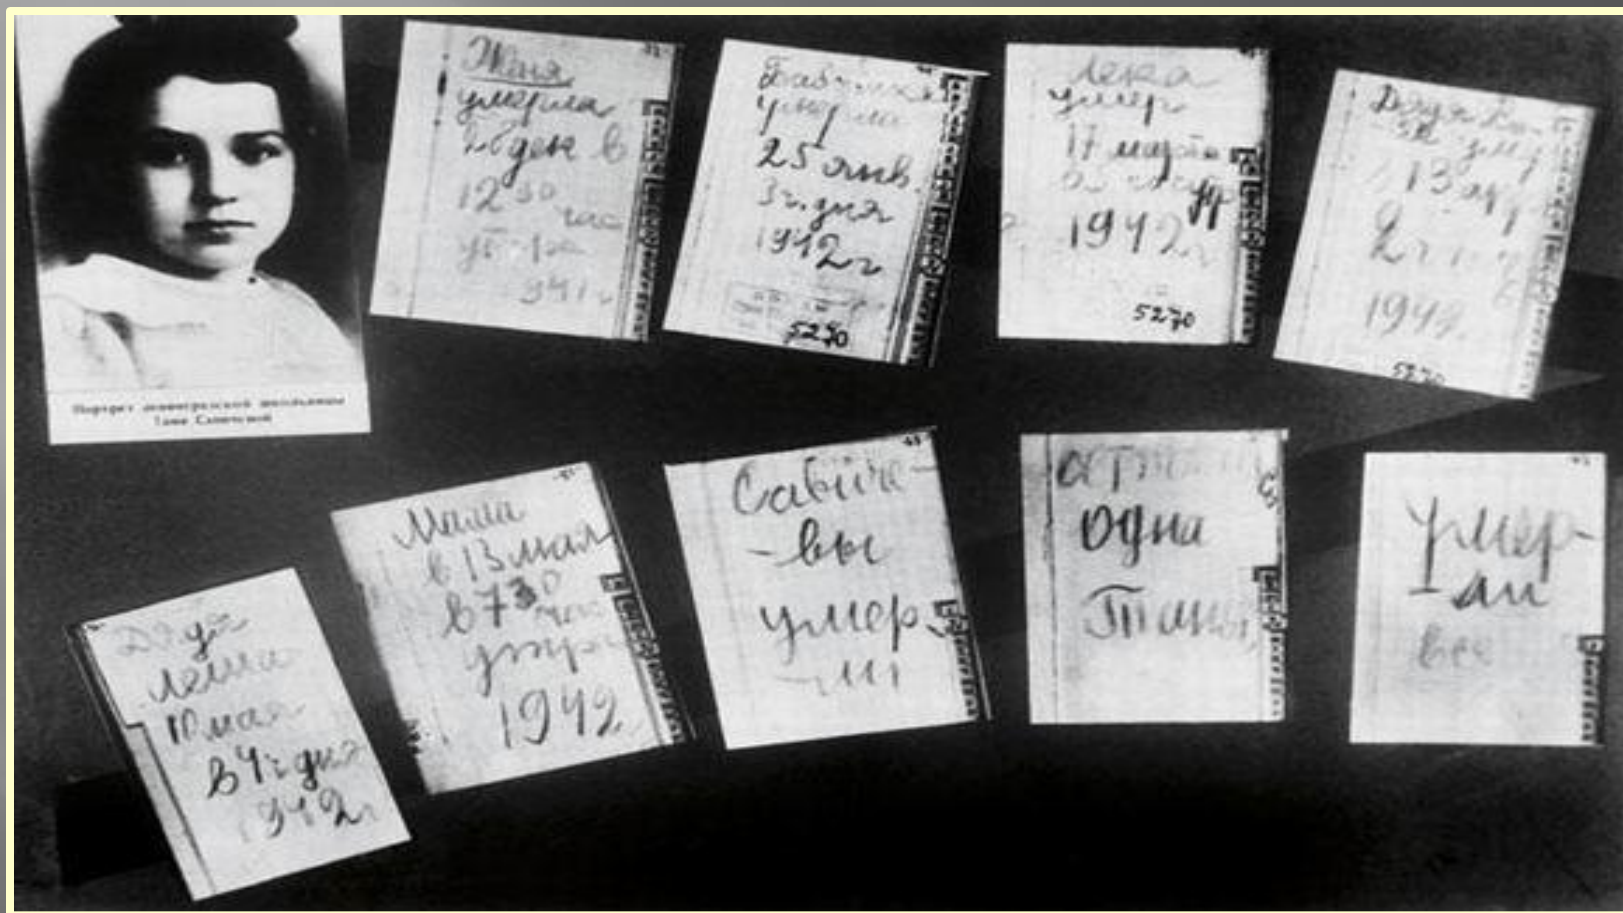 Портрет ленинградской школьницы
Тани Савичевой
Женя
умерла
28 дек в
12 30 час
утра
1941 г
Бабушка
умерла
25 янв.
3 ч. дня
1942 г
5270
Лека
умер
17 марта
1942 г
5270
Дядя Ва-
13 апр
2 ч
1942
5270
Дядя
Леша
10 мая
в 4 ч дня
1942 г
Мама
в 13 мая
в 7 30 час
утра
1942
Савиче-
-вы
умер
-ли
одна
Таня
Умер-
-ли
все